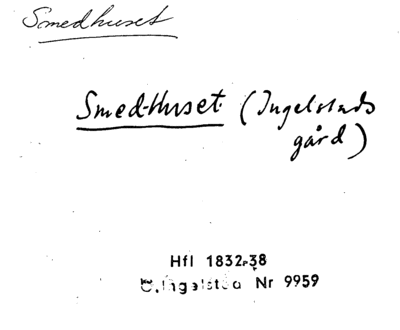 Smedhuset
Smed-Huset (Ingelstads
gård)
Hfl 1832-38
Ö. Ingelstad Nr 9959